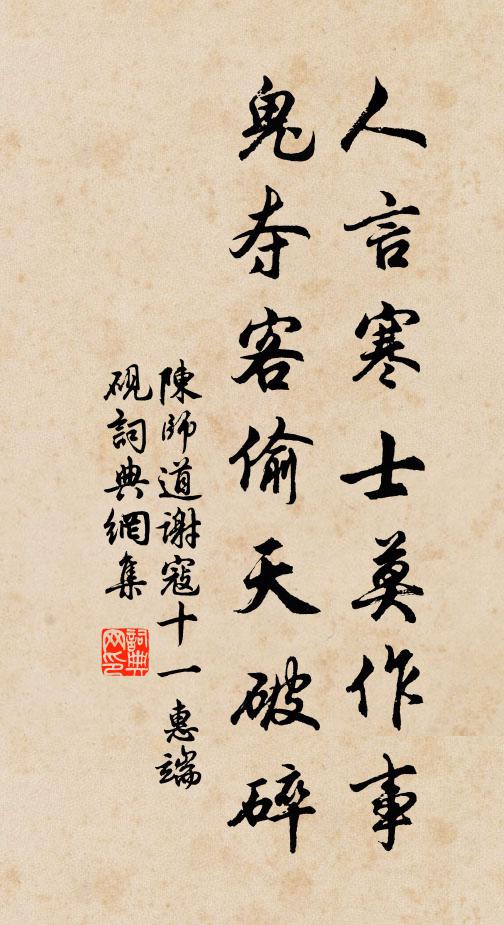 人言寒士莫作事
鬼夺客偷天破碎
陳師道謝寇十一惠端
硯詞典網集
詞典
网印